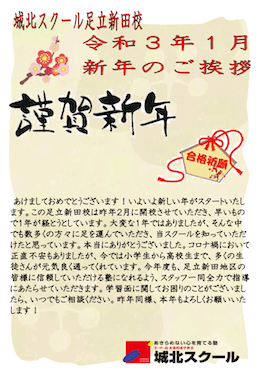 城北スクール足立新田校
令和３年１月
新年のご挨拶
謹賀新年
合格祈願
あけましておめでとうございます！いよいよ新しい年がスタートいたします。この足立新田校は昨年2月に開校させていただき、早いもので1年が経とうとしています。大変な1年ではありましたが、そんな中でも数多くの方々に足を運んでいただき、当スクールを知っていただけたと思っています。本当にありがとうございました。コロナ禍において正直不安もありましたが、今では小学生から高校生まで、多くの生徒さんが元気良く通ってくれています。今年度も、足立新田地区の皆様に信頼していただける塾になれるよう、スタッフ一同全力で指導にあたらせていただきます。学習面に関してお困りのことがございましたら、いつでもご相談ください。昨年同様、本年もよろしくお願いいたします！
あきらめない心を育てる塾
城北スクール